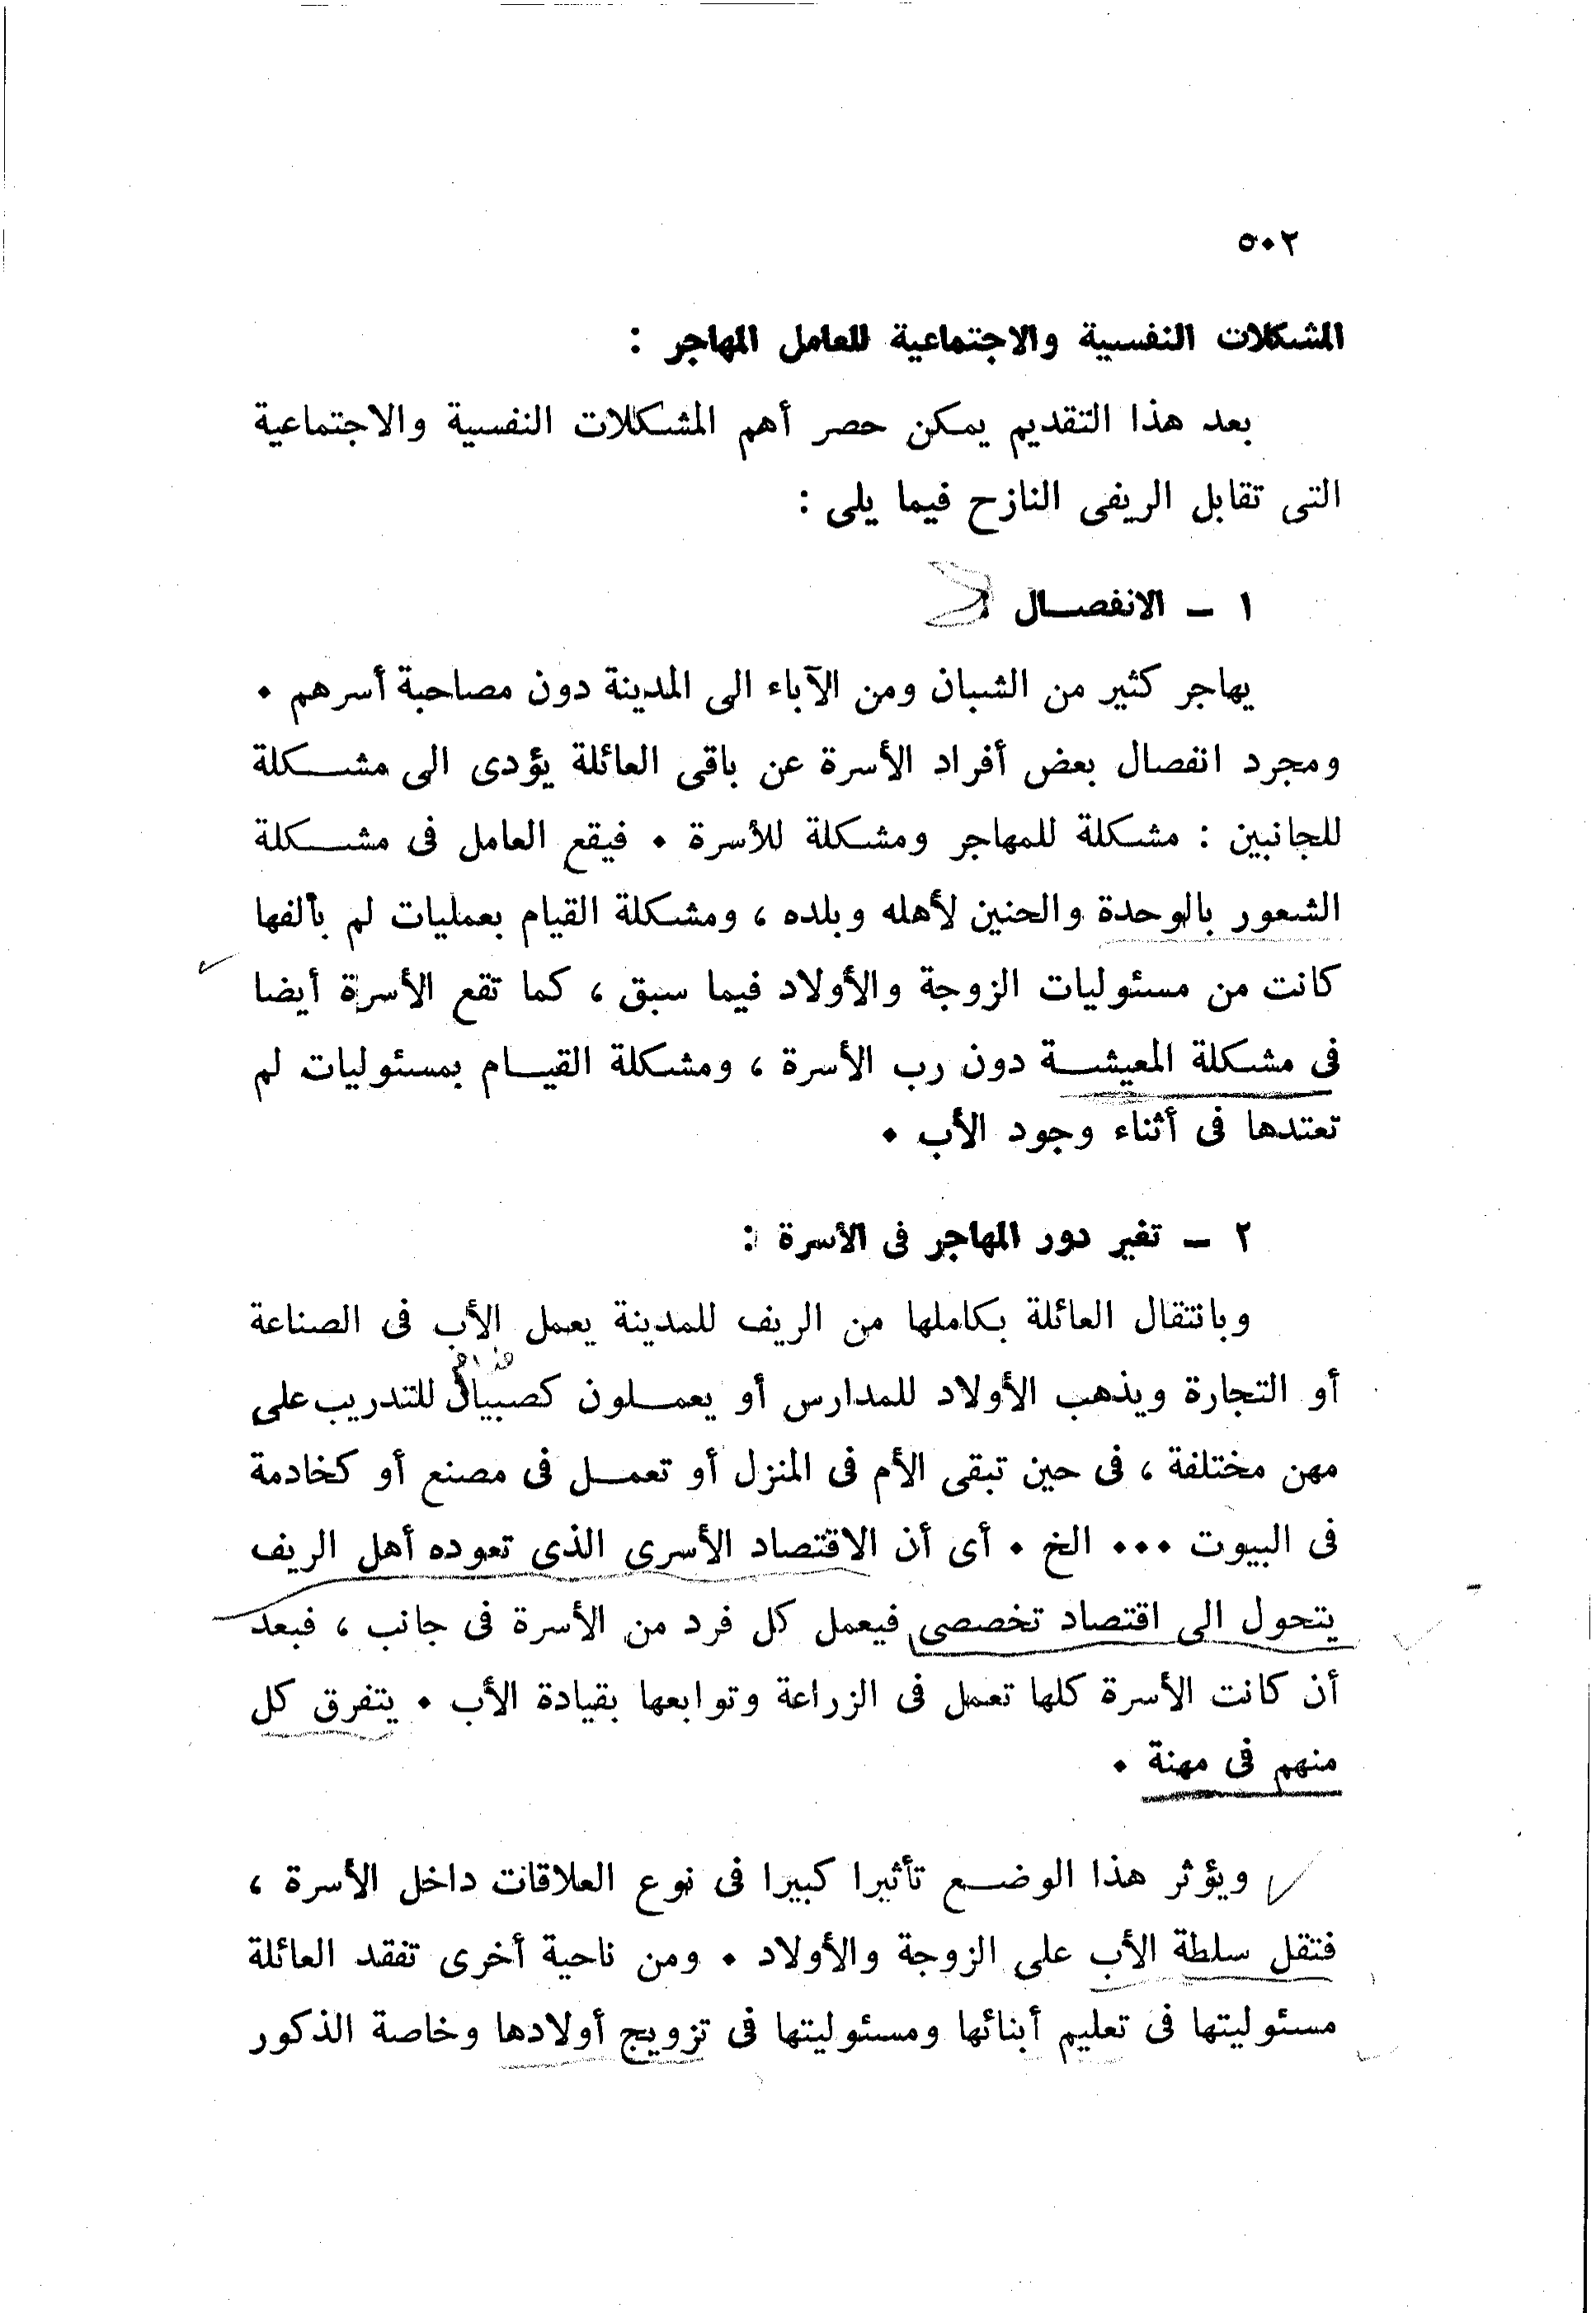 ٥٠٢
المشكلات النفسية والاجتماعية للعامل المهاجر :
بعد هذا التقديم يمكن حصر أهم المشكلات النفسية والاجتماعية
التى تقابل الريفى النازح فيما يلى :
١ ــ الانفصــال :
يهاجر كثير من الشبان ومن الآباء الى المدينة دون مصاحبة أسرهم ٠
ومجرد انفصال بعض أفراد الأسرة عن باقى العائلة يؤدى الى مشــكلة
للجانبين : مشكلة للمهاجر ومشكلة للأسرة ٠ فيقع العامل فى مشــكلة
الشعور بالوحدة والحنين لأهله وبلده ، ومشكلة القيام بعمليات لم يألفها
كانت من مسئوليات الزوجة والأولاد فيما سبق ، كما تقع الأسرة أيضا
فى مشكلة المعيشــة دون رب الأسرة ، ومشكلة القيــام بمسئوليات لم
تعتدها فى أثناء وجود الأب ٠
٢ ــ تغير دور المهاجر فى الأسرة :
وبانتقال العائلة بكاملها من الريف للمدينة يعمل الأب فى الصناعة
أو التجارة ويذهب الأولاد للمدارس أو يعمــلون كصبيان للتدريب على
مهن مختلفة ، فى حين تبقى الأم فى المنزل أو تعمــل فى مصنع أو كخادمة
فى البيوت ٠٠٠ الخ ٠ أى أن الاقتصاد الأسرى الذى تعوده أهل الريف
يتحول الى اقتصاد تخصصى فيعمل كل فرد من الأسرة فى جانب ، فبعد
أن كانت الأسرة كلها تعمل فى الزراعة وتوابعها بقيادة الأب ٠ يتفرق كل
منهم فى مهنة ٠
ويؤثر هذا الوضــع تأثيرا كبيرا فى نوع العلاقات داخل الأسرة ،
فتقل سلطة الأب على الزوجة والأولاد ٠ ومن ناحية أخرى تفقد العائلة
مسئوليتها فى تعليم أبنائها ومسئوليتها فى تزويج أولادها وخاصة الذكور